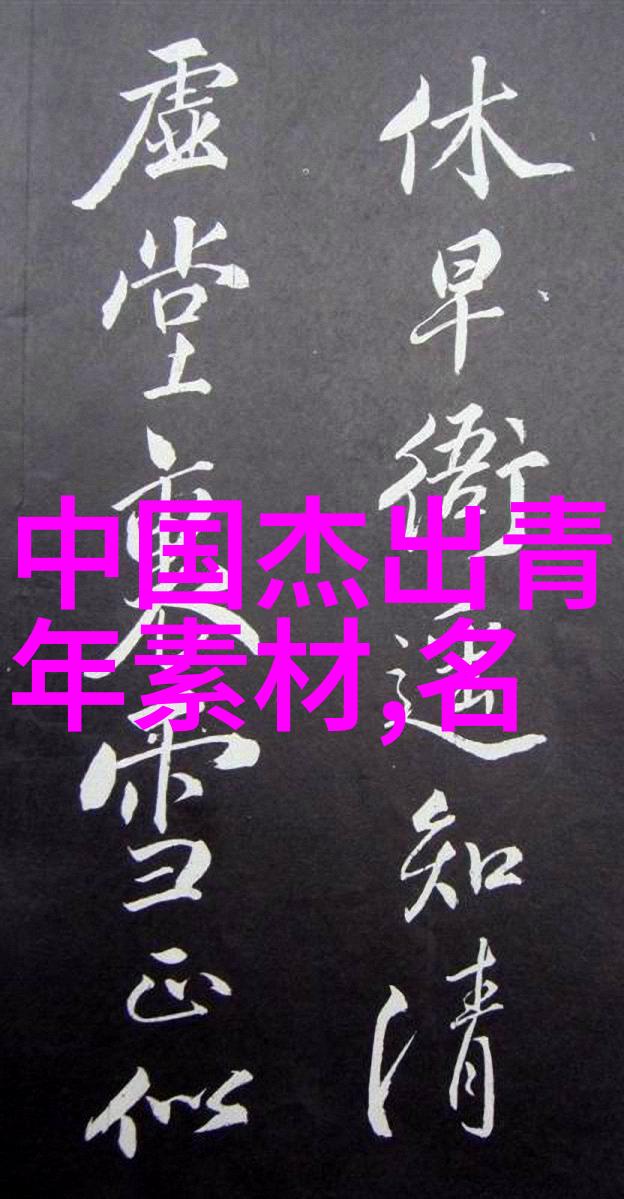 休早衙遥知清
虚堂雪正似
中国杰出青
年素材,名